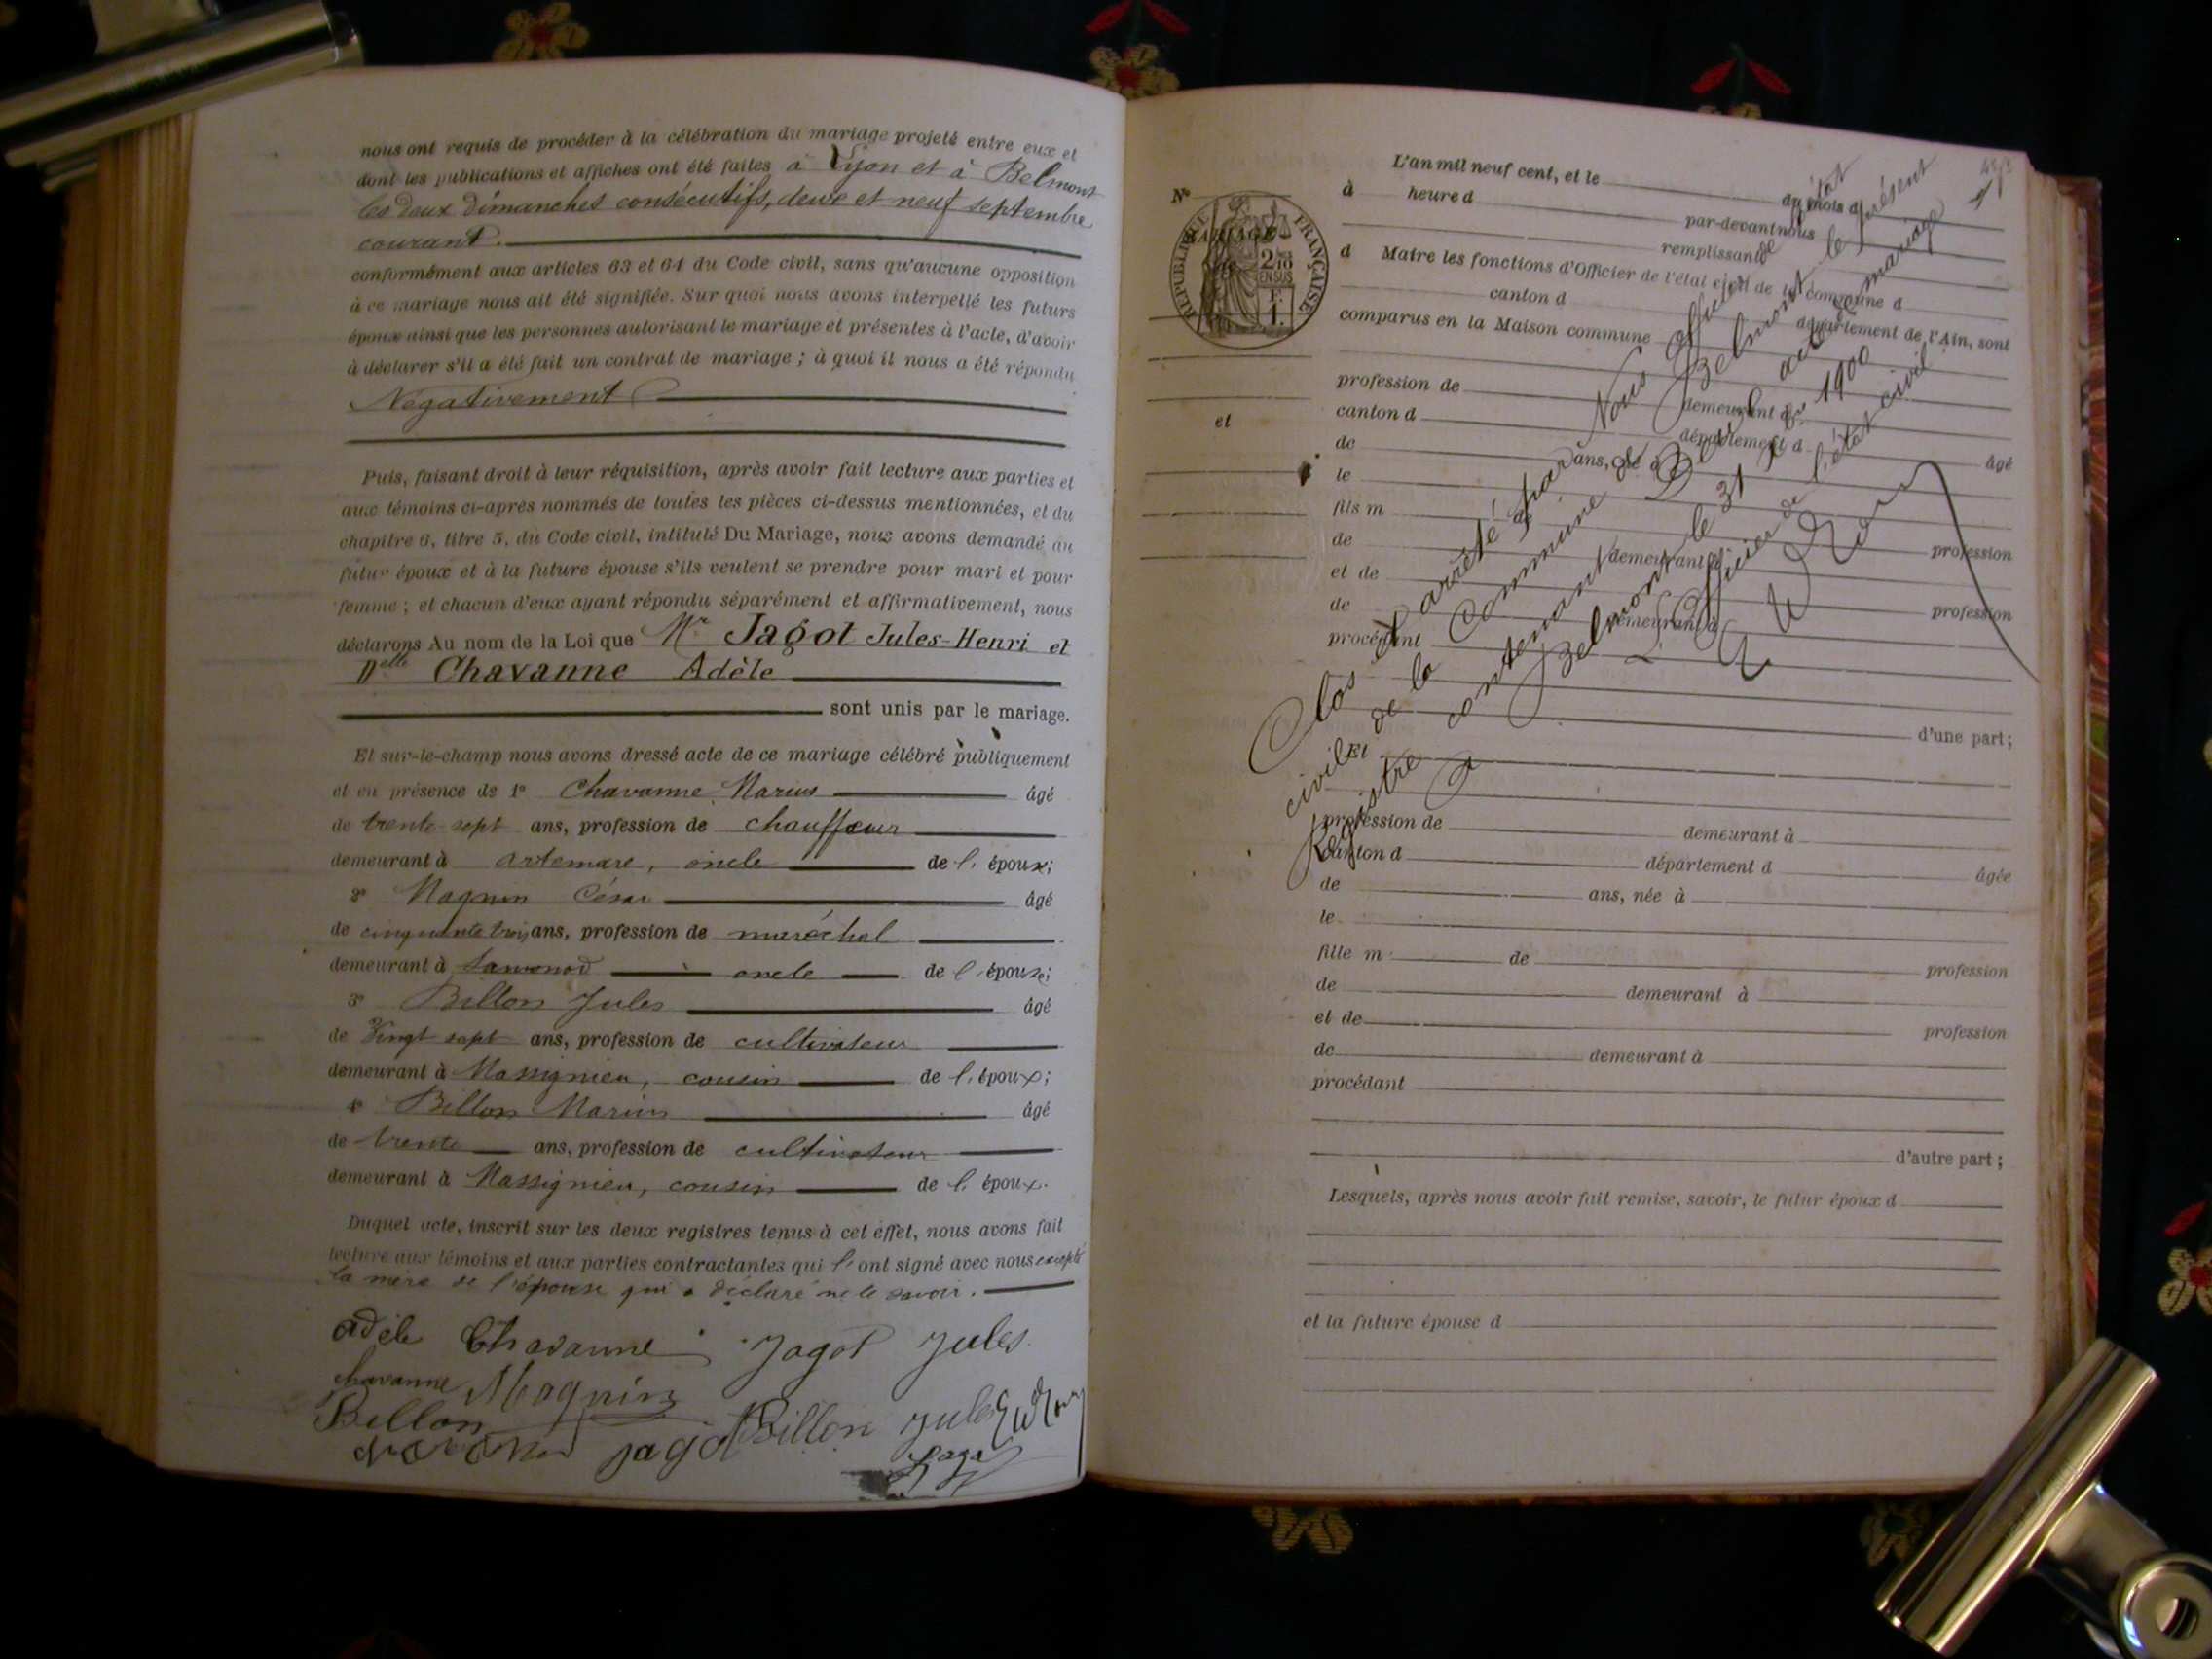 nous ont requis de procéder à la célébration du mariage projeté entre eux et
dont les publications et affiches ont été faites à Lyon et à Belmont
les deux dimanches consécutifs, deux et neuf septembre
courant.
conformément aux articles 63 et 64 du Code civil, sans qu'aucune opposition
à ce mariage nous ait été signifiée. Sur quoi nous avons interpellé les futurs
époux ainsi que les personnes autorisant le mariage et présentes à l'acte, d'avoir
à déclarer s'il a été fait un contrat de mariage ; à quoi il nous a été répondu
Négativement
Puis, faisant droit à leur réquisition, après avoir fait lecture aux parties et
aux témoins ci-après nommés de toutes les pièces ci-dessus mentionnées, et du
chapitre 6, titre 5, du Code civil, intitulé Du Mariage, nous avons demandé au
futur époux et à la future épouse s'ils veulent se prendre pour mari et pour
femme ; et chacun d'eux ayant répondu séparément et affirmativement, nous
déclarons Au nom de la Loi que Mr Jagot Jules-Henri et
Delle Chavanne Adèle
sont unis par le mariage.
Et sur-le-champ nous avons dressé acte de ce mariage célébré publiquement
et en présence de 1° Chavanne Marius âgé
de trente sept ans, profession de chauffeur
demeurant à Artemare, oncle de l'époux;
2° Magnin César âgé
de cinquante trois ans, profession de maréchal
demeurant à oncle de l'époux;
3° Billon Jules âgé
de Vingt sept ans, profession de cultivateur
demeurant à Massignieu, cousin de l'époux;
4° Billon Marius âgé
de trente ans, profession de cultivateur
demeurant à Massignieu, cousin de l'époux.
Duquel acte, inscrit sur les deux registres tenus à cet effet, nous avons fait
lecture aux témoins et aux parties contractantes qui l'ont signé avec nous excepté
la mère de l'épouse qui a déclaré ne le savoir.
Adèle Chavanne Jagot Jules
chavanne Magnin
Billon Jagot Billon Jules
L'an mil neuf cent, et le du mois d
N°
MARIAGE
RÉPUBLIQUE FRANÇAISE
2/10 EN SUS
F. 1.
et
à heure d
par-devant nous
remplissant
d Maire les fonctions d'Officier de l'état civil de la commune d
canton d département de l'Ain, sont
comparus en la Maison commune
profession de demeurant à
canton d département d
de ans, né à âgé
le
fils m de
de demeurant à profession
et de
de demeurant à profession
procédant
d'une part;
Et
profession de demeurant à
canton d département d
de ans, née à âgée
le
fille m de profession
de demeurant à
et de profession
de demeurant à
procédant
d'autre part ;
Lesquels, après nous avoir fait remise, savoir, le futur époux d
et la future épouse d
Clos et arrêté par Nous officier de l'état
civil de la Commune de Belmont le présent
Registre contenant acte de mariage
à Belmont le 31 Xbre 1900
L'Officier de l'état civil